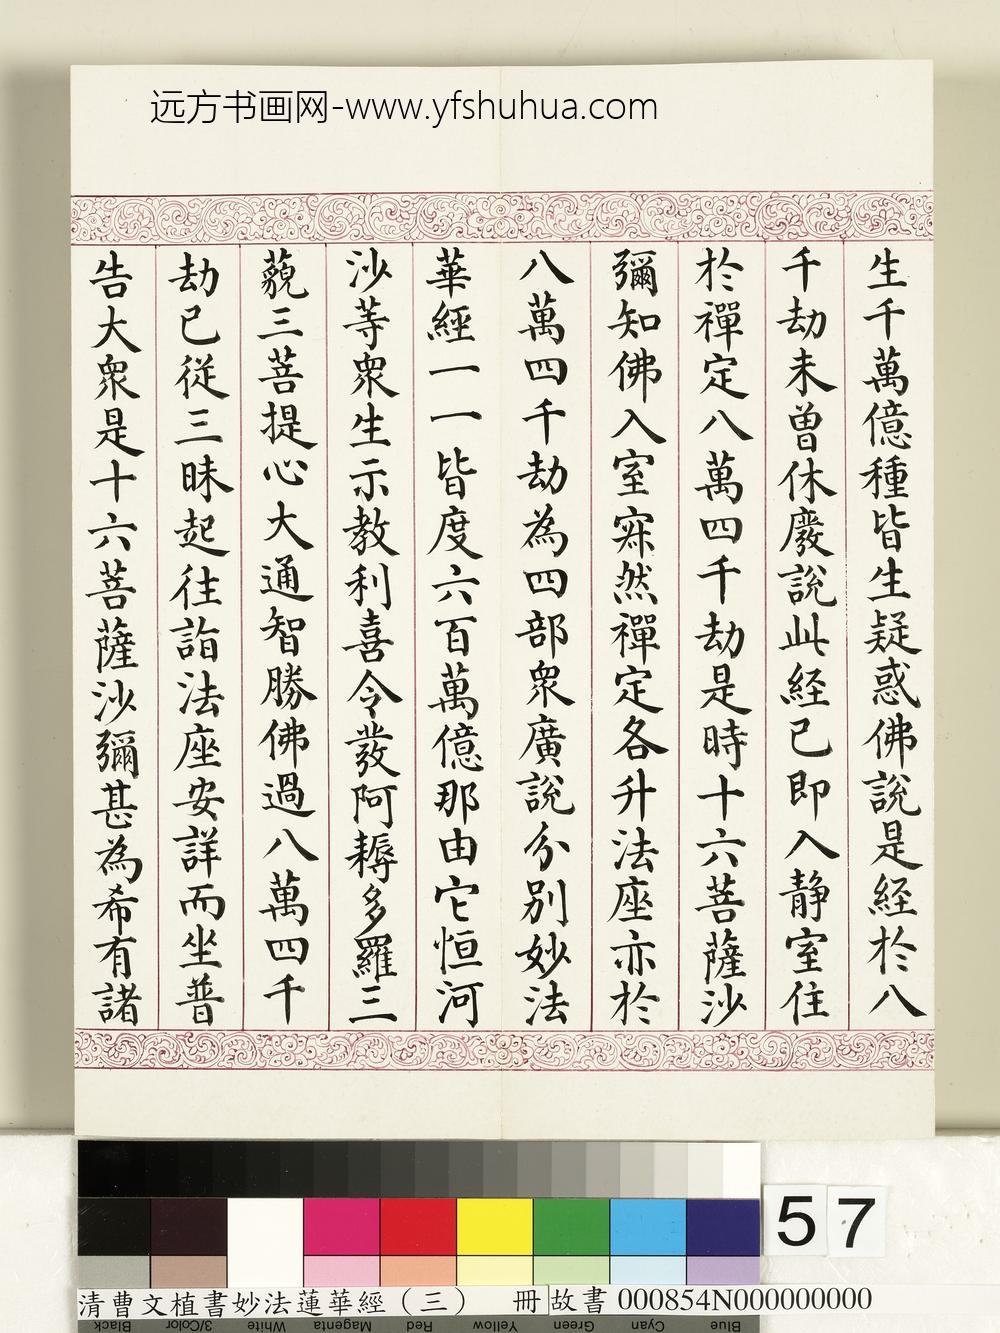 远方书画网-www.yfshuhua.com
生千萬億種皆生疑惑佛說是經於八
千劫未曾休廢說此經已即入静室住
於禪定八萬四千劫是時十六菩薩沙
彌知佛入室寂然禪定各升法座亦於
八萬四千劫為四部眾廣說分別妙法
華經一一皆度六百萬億那由它恒河
沙等眾生示教利喜令發阿耨多羅三
藐三菩提心大通智勝佛過八萬四千
劫已從三昧起往詣法座安詳而坐普
告大眾是十六菩薩沙彌甚為希有諸
57
清曹文植書妙法蓮華經（三） 冊 故書 000854N000000000
Black 3/Color White Magenta Red Yellow Green Cyan Blue